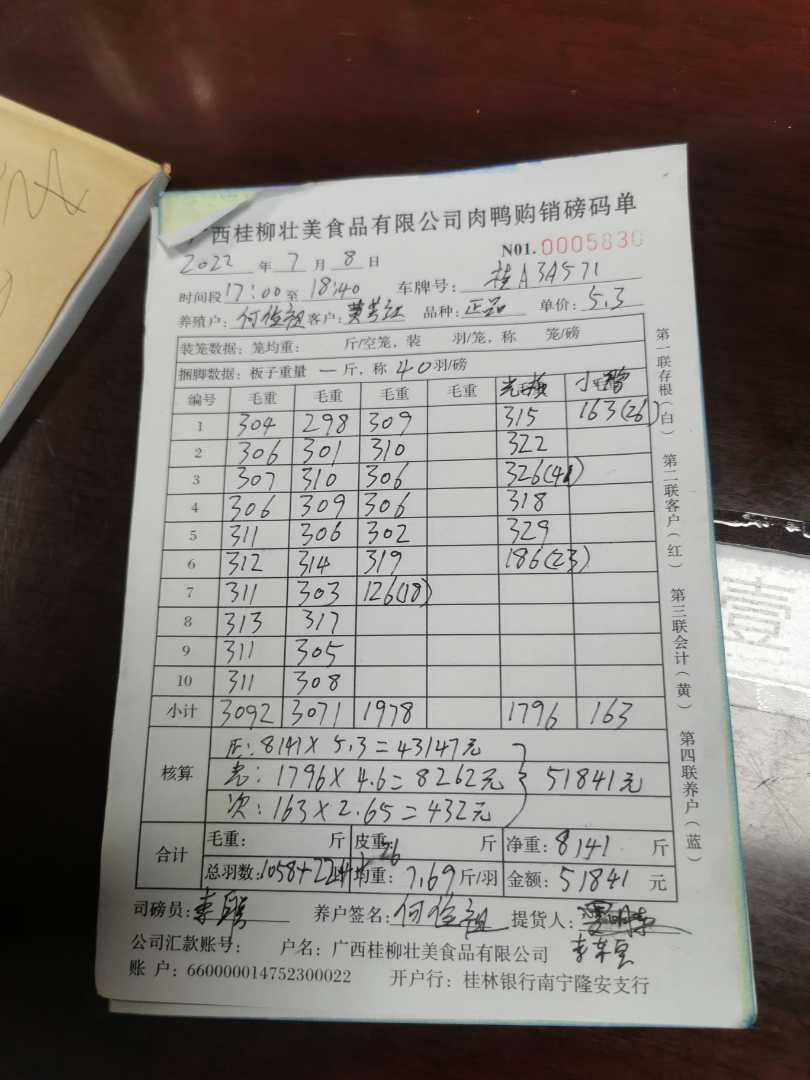 广西桂柳壮美食品有限公司肉鸭购销磅码单
N01. 0005830
2022 年 7 月 8 日
时间段 17:00 至 18:40 车牌号: 桂A3A571
养殖户: 何 祖 客户: 黄 红 品种: 正品 单价: 5.3
装笼数据: 笼均重: 斤/空笼, 装 羽/笼, 称 笼/磅
捆脚数据: 板子重量 一 斤, 称 40 羽/磅
编号 毛重 毛重 毛重 毛重 毛重
1 304 298 309 315 163(26)
2 306 301 310 322
3 307 310 306 326(41)
4 306 309 306 318
5 311 306 302 329
6 312 314 319 186(23)
7 311 303 126(18)
8 313 317
9 311 305
10 311 308
小计 3092 3071 1978 1796 163
核算
正: 8141 × 5.3 = 43147元
1796 × 4.6 = 8262元 } 51841元
次: 163 × 2.65 = 432元
合计
毛重: 斤 皮重: 斤 净重: 8141 斤
总羽数: 1058+224+26 均重: 7.69 斤/羽 金额: 51841 元
司磅员: 李 养户签名: 何 祖 提货人:
李荣
公司汇款账号: 户名: 广西桂柳壮美食品有限公司
账 户: 660000014752300022 开户行: 桂林银行南宁隆安支行
第一联存根(白) 第二联客户(红) 第三联会计(黄) 第四联养户(蓝)
壹